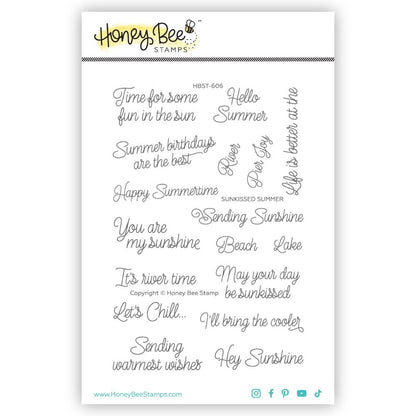 Honey Bee
STAMPS
HBST-606
Time for some
fun in the sun
Hello
Summer
Life is better at the
Summer birthdays
are the best
River
Pier
Joy
Happy Summertime
SUNKISSED SUMMER
Sending Sunshine
You are
my sunshine
Beach
Lake
It's river time
May your day
be sunkissed
Copyright © Honey Bee Stamp
Let's Chill...
I'll bring the cooler
Sending
warmest wishes
Hey Sunshine
www.HoneyBeeStamps.com